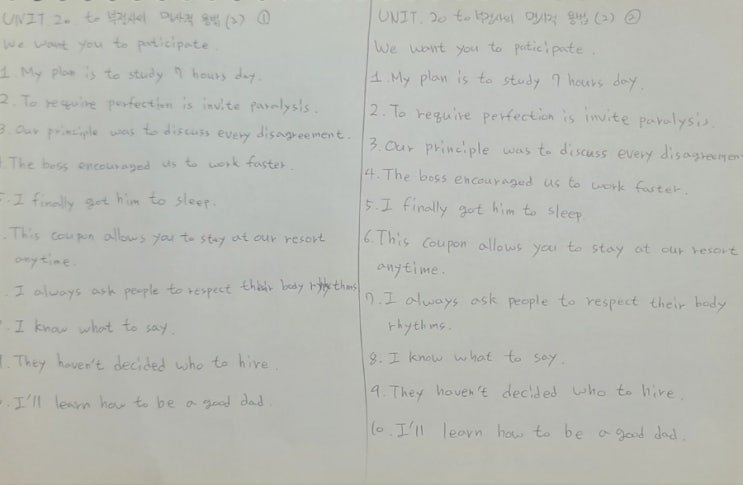 UNIT. 20 to 부정사의 명사적 용법 (2) ①
We want you to paticipate.
1. My plan is to study 7 hours day.
2. To require perfection is invite paralysis.
3. Our principle was to discuss every disagreement.
. The boss encouraged us to work faster.
. I finally got him to sleep.
. This coupon allows you to stay at our resort
anytime.
. I always ask people to respect their body rhythms
. I know what to say.
. They haven't decided who to hire.
. I'll learn how to be a good dad.
UNIT. 20 to부정사의 명사적 용법 (2) ②
We want you to paticipate.
1. My plan is to study 7 hours day.
2. To require perfection is invite paralysis.
3. Our principle was to discuss every disagreemen
4. The boss encouraged us to work faster.
5. I finally got him to sleep.
6. This coupon allows you to stay at our resort
anytime.
7. I always ask people to respect their body
rhythms.
8. I know what to say.
9. They haven't decided who to hire.
10. I'll learn how to be a good dad.